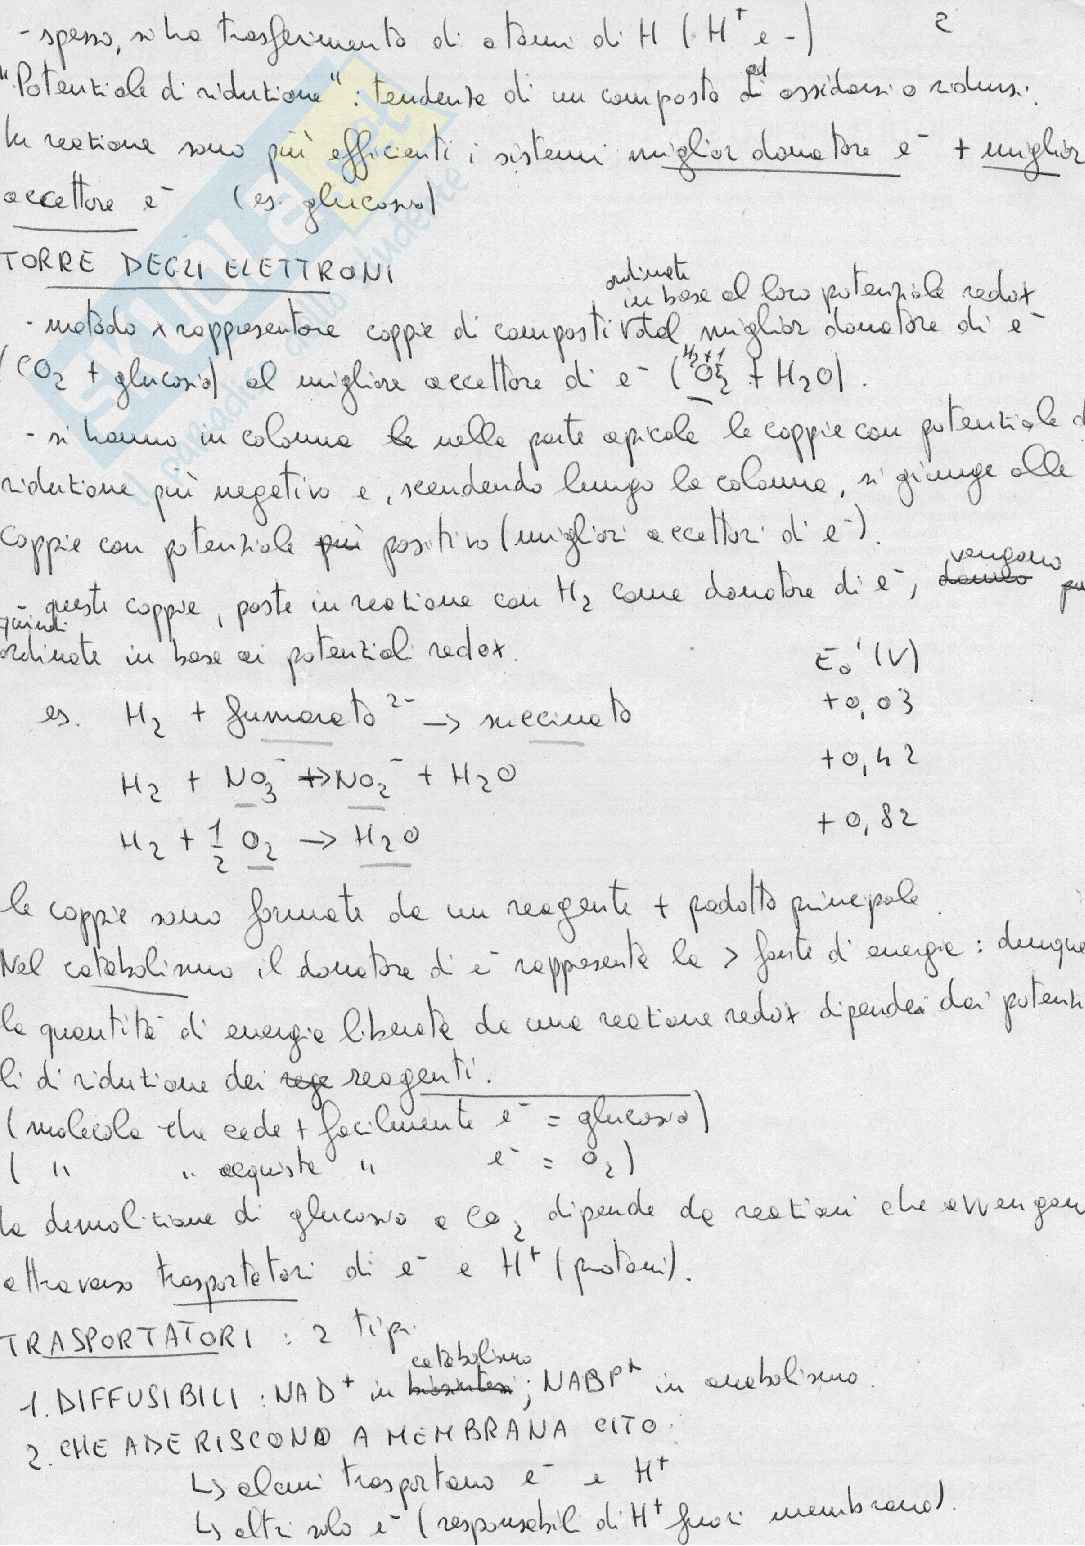 - spesso, si ha trasferimento di atomi di H (H⁺ e -) 2
"Potenziale di riduzione": tendenza di un composto ad ossidarsi o ridursi.
In reazione sono più efficienti i sistemi miglior donatore e⁻ + miglior
accettore e⁻ (es. glucosio)
TORRE DEGLI ELETTRONI
ordinate
in base al loro potenziale redox
- metodo x rappresentare coppie di composti dal miglior donatore di e⁻
(CO₂ + glucosio) al migliore accettore di e⁻ (½ O₂ + H₂O).
- si hanno in colonna nella parte apicale le coppie con potenziale d
riduzione più negativo e, scendendo lungo la colonna, si giunge alle
coppie con potenziale più positivo (migliori accettori di e⁻).
- queste coppie, poste in reazione con H₂ come donatore di e⁻, vengono
quindi
ordinate in base ai potenziali redox. E₀' (V)
es. H₂ + fumarato²⁻ → succinato +0,03
H₂ + NO₃⁻ → NO₂⁻ + H₂O +0,42
H₂ + ½ O₂ → H₂O +0,82
le coppie sono formate da un reagente + prodotto principale.
Nel catabolismo il donatore di e⁻ rappresenta la > fonte di energia: dunque
la quantità di energia liberata da una reazione redox dipende dai potenzia
li di riduzione dei reagenti.
(molecola che cede + facilmente e⁻ = glucosio)
( " " acquista " e⁻ = O₂)
la demolizione di glucosio a CO₂ dipende da reazioni che avvengon
attraverso trasportatori di e⁻ e H⁺ (protoni).
TRASPORTATORI : 2 tipi.
1. DIFFUSIBILI : NAD⁺ in biosintesi catabolismo; NABP⁺ in anabolismo.
2. CHE ADERISCONO A MEMBRANA CITO.
↳ alcuni trasportano e⁻ e H⁺
↳ altri solo e⁻ (responsabili di H⁺ fuori membrana).
SKUOLA.net
il paradiso dello studente